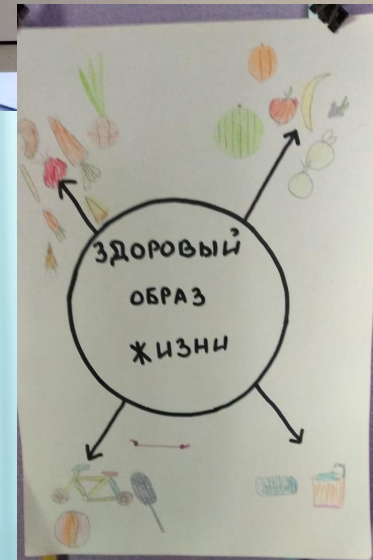 ЗДОРОВЫЙ
ОБРАЗ
ЖИЗНИ